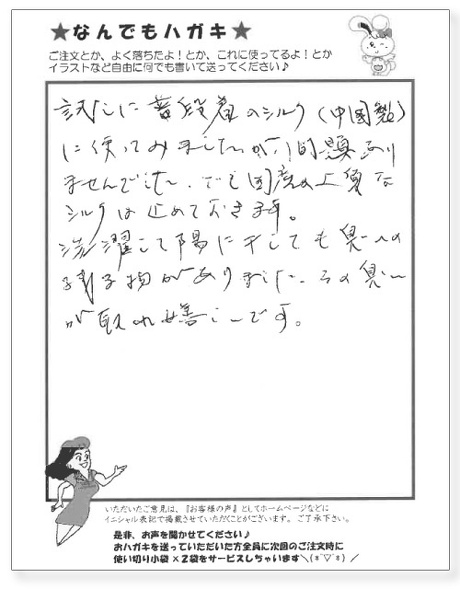 ★なんでもハガキ★
ご注文とか、よく落ちたよ！とか、これに使ってるよ！とか
イラストなど自由に何でも書いて送ってください♪
試しに普段着のシルク（中国製）
に使ってみましたが、問題あり
ませんでした。でも国産の上質な
シルクは止めておきます。
洗濯して陽に干しても臭いの
残る物がありました。その臭い
が取れ嬉しいです。
いただいたご意見は、『お客様の声』としてホームページなどに
イニシャル表記で掲載させていただくことがございます。ご了承下さい。
是非、お声を聞かせてください♪
おハガキを送っていただいた方全員に次回のご注文時に
使い切り小袋×2袋をサービスしちゃいます＼(*^▽^*)／